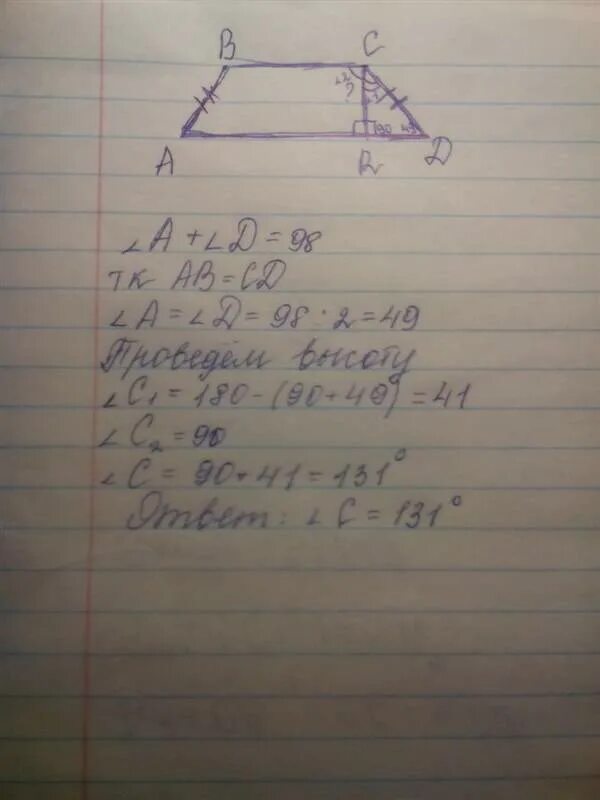 B C
∠2 ? ∠1
90 49
A R D
∠A + ∠D = 98
тк AB = CD
∠A = ∠D = 98 : 2 = 49
Проведём высоту
∠C₁ = 180 - (90 + 49°) = 41
∠C₂ = 90
∠C = 90 + 41 = 131°
Ответ: ∠C = 131°